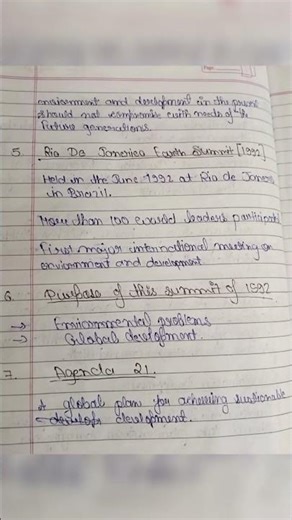 environment and development in the present
should not compromise with needs of the
future generations.
5. Rio De Janerico Earth Summit [1992]
Held in the June 1992 at Rio de Janero
in Brazil.
More than 100 world leaders participat
First major international meeting on
environment and development
6. Purpose of this summit of 1992
→ Environmental problems
→ Global development.
7. Agenda 21.
A global plan for achieving sustionable
development.